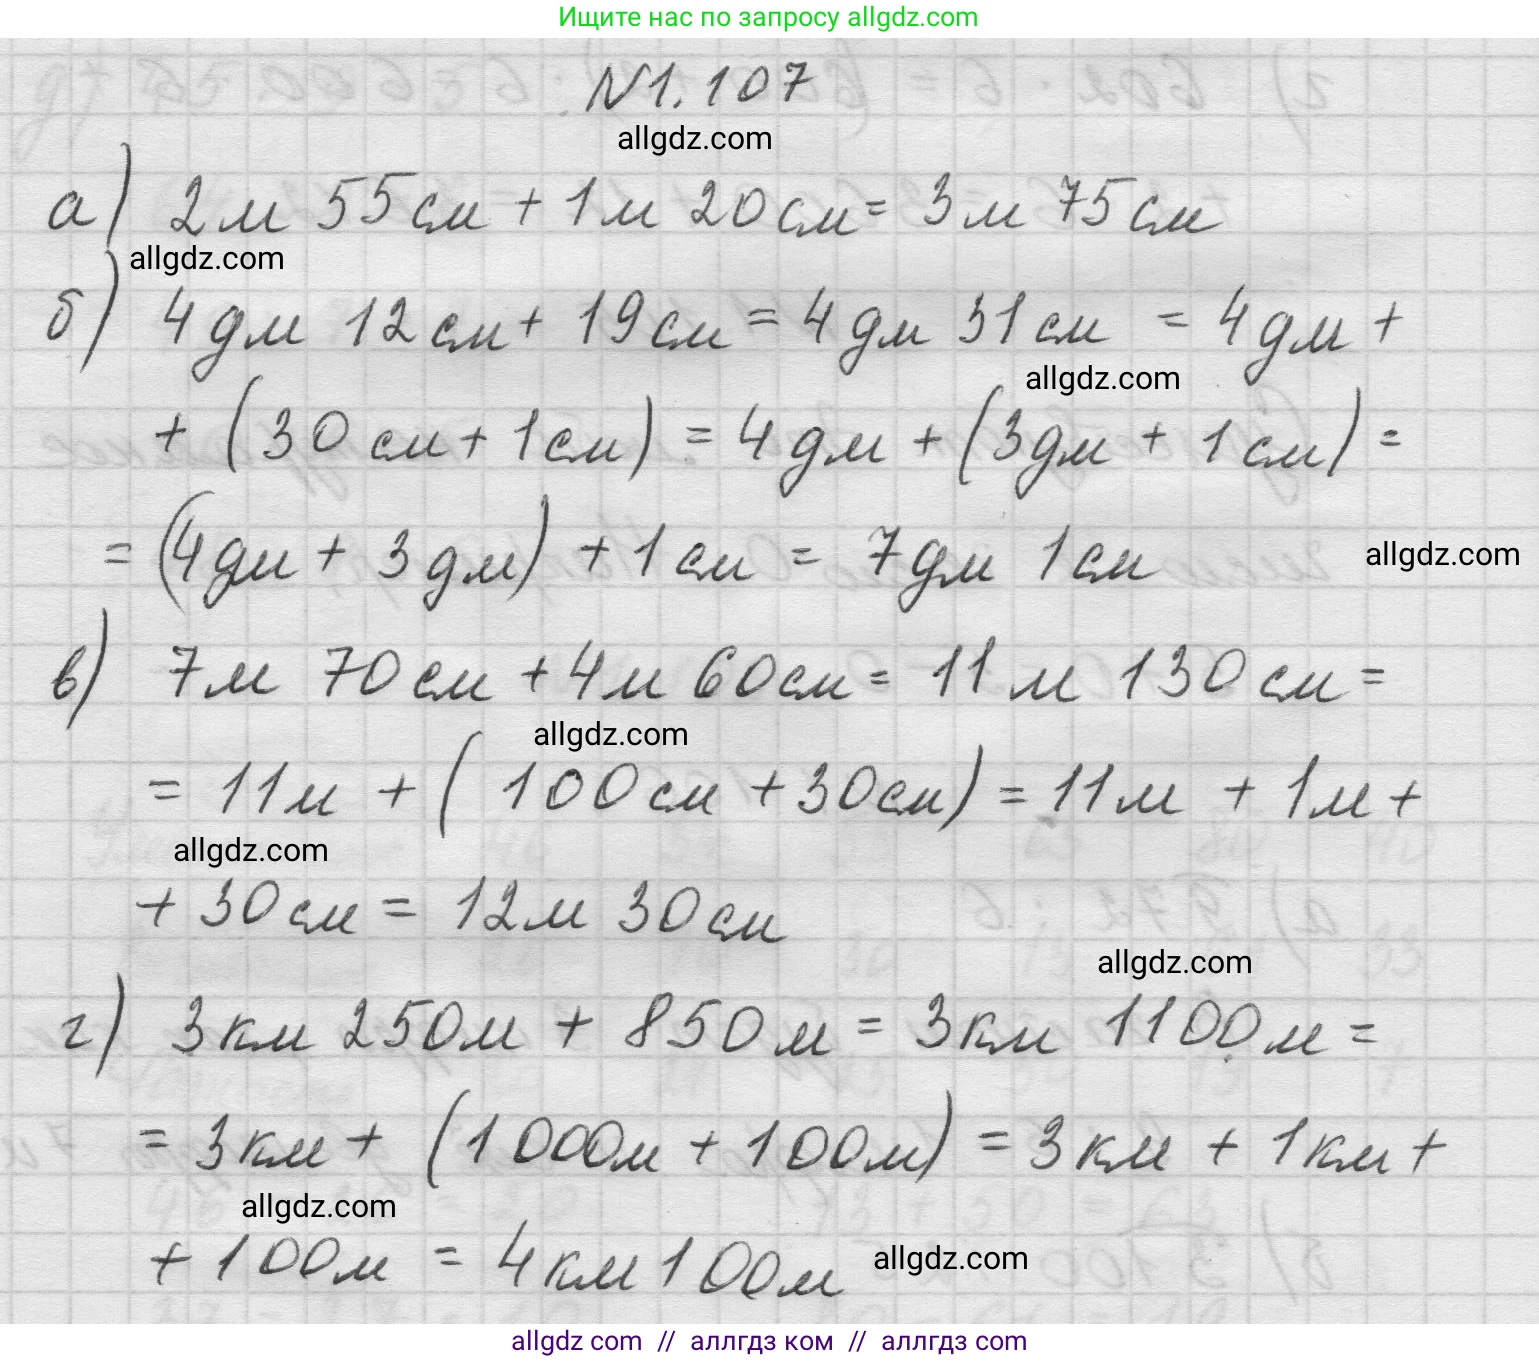 Ищите нас по запросу allgdz.com
N1.107
allgdz.com
а) 2м 55см + 1м 20см = 3м 75см
allgdz.com
б) 4дм 12см + 19см = 4дм 31см = 4дм +
allgdz.com
+ (30см + 1см) = 4дм + (3дм + 1см) =
= (4дм + 3дм) + 1см = 7дм 1см
allgdz.com
в) 7м 70см + 4м 60см = 11м 130см =
allgdz.com
= 11м + (100см + 30см) = 11м + 1м +
allgdz.com
+ 30см = 12м 30см
allgdz.com
г) 3км 250м + 850м = 3км 1100м =
= 3км + (1000м + 100м) = 3км + 1км +
allgdz.com
+ 100м = 4км 100м
allgdz.com
allgdz com // аллгдз ком // аллгдз com